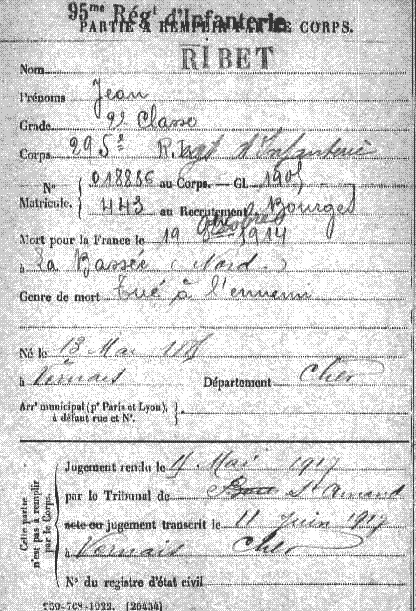 95me Régt d'Infanterie
PARTIE À REMPLIR PAR LE CORPS.
RIBET
Nom
Prénoms Jean
Grade 2e Classe
Corps 295e Régt d'Infanterie
N° 018886 au Corps. — GL 1905
Matricule. 443 au Recrutement Bourges
Mort pour la France le 19 Octobre 1914
à La Bassée (Nord)
Genre de mort Tué à l'ennemi
Né le 13 Mai
à Vernais Département Cher
Arrt municipal (pr Paris et Lyon),
à défaut rue et N°.
Cette partie
n'est pas à remplir
par le Corps.
Jugement rendu le Mai 1917
par le Tribunal de St Amand
acte ou jugement transcrit le 11 Juin 1917
à Vernais Cher
N° du registre d'état civil
750-708-1922. [26434]